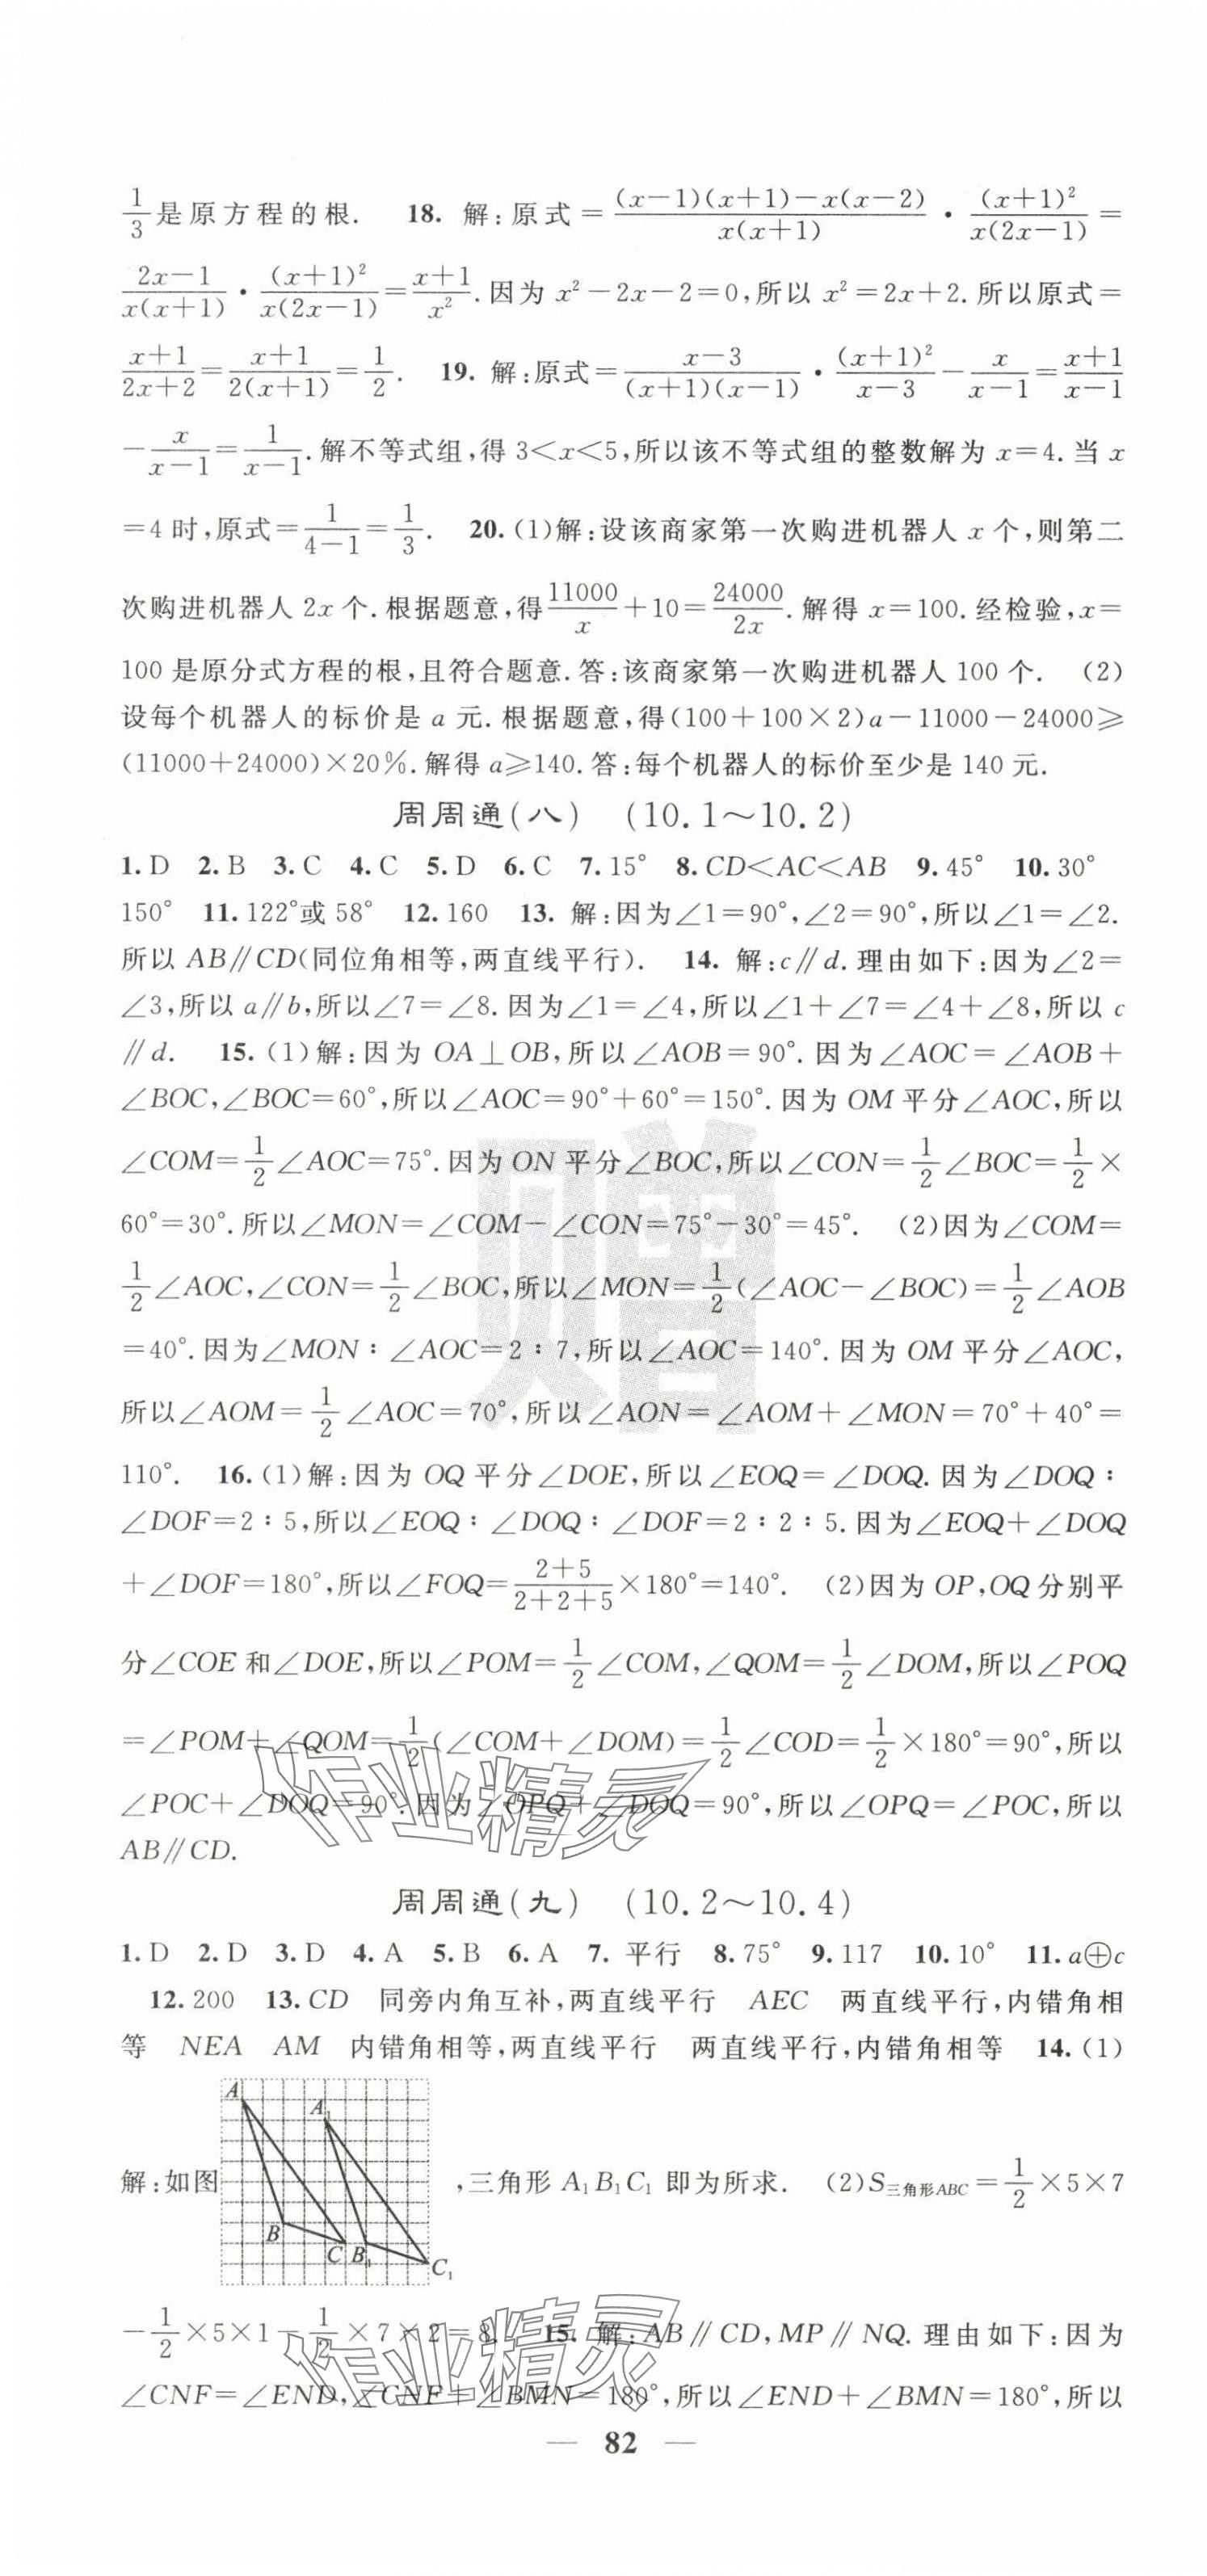 1/3是原方程的根. 18. 解:原式=[(x-1)(x+1)-x(x-2)]/[x(x+1)]·(x+1)²/[x(2x-1)]=
(2x-1)/[x(x+1)]·(x+1)²/[x(2x-1)]=(x+1)/x².因为 x²-2x-2=0,所以 x²=2x+2.所以原式=
(x+1)/(2x+2)=(x+1)/[2(x+1)]=1/2. 19. 解:原式=(x-3)/[(x+1)(x-1)]·(x+1)²/(x-3)-x/(x-1)=(x+1)/(x-1)
-x/(x-1)=1/(x-1).解不等式组,得 3<x<5,所以该不等式组的整数解为 x=4.当 x
=4 时,原式=1/(4-1)=1/3. 20.(1)解:设该商家第一次购进机器人 x 个,则第二
次购进机器人 2x 个.根据题意,得11000/x+10=24000/2x.解得 x=100.经检验,x=
100 是原分式方程的根,且符合题意.答:该商家第一次购进机器人 100 个. (2)
设每个机器人的标价是 a 元.根据题意,得(100+100×2)a-11000-24000≥
(11000+24000)×20%.解得 a≥140.答:每个机器人的标价至少是 140 元.
周周通(八) (10.1~10.2)
1.D 2.B 3.C 4.C 5.D 6.C 7.15° 8.CD<AC<AB 9.45° 10.30°
150° 11.122°或 58° 12.160 13. 解:因为∠1=90°,∠2=90°,所以∠1=∠2.
所以 AB∥CD(同位角相等,两直线平行). 14. 解:c∥d.理由如下:因为∠2=
∠3,所以 a∥b,所以∠7=∠8.因为∠1=∠4,所以∠1+∠7=∠4+∠8,所以 c
∥d. 15.(1)解:因为 OA⊥OB,所以∠AOB=90°.因为∠AOC=∠AOB+
∠BOC,∠BOC=60°,所以∠AOC=90°+60°=150°.因为 OM 平分∠AOC,所以
∠COM=1/2∠AOC=75°.因为 ON 平分∠BOC,所以∠CON=1/2∠BOC=1/2×
60°=30°.所以∠MON=∠COM-∠CON=75°-30°=45°. (2)因为∠COM=
1/2∠AOC,∠CON=1/2∠BOC,所以∠MON=1/2(∠AOC-∠BOC)=1/2∠AOB
=40°.因为∠MON:∠AOC=2:7,所以∠AOC=140°.因为 OM 平分∠AOC,
所以∠AOM=1/2∠AOC=70°,所以∠AON=∠AOM+∠MON=70°+40°=
110°. 16.(1)解:因为 OQ 平分∠DOE,所以∠EOQ=∠DOQ.因为∠DOQ:
∠DOF=2:5,所以∠EOQ:∠DOQ:∠DOF=2:2:5.因为∠EOQ+∠DOQ
+∠DOF=180°,所以∠FOQ=(2+5)/(2+2+5)×180°=140°. (2)因为 OP,OQ 分别平
分∠COE 和∠DOE,所以∠POM=1/2∠COM,∠QOM=1/2∠DOM,所以∠POQ
=∠POM+∠QOM=1/2(∠COM+∠DOM)=1/2∠COD=1/2×180°=90°,所以
∠POC+∠DOQ=90°.因为∠OPQ+∠DOQ=90°,所以∠OPQ=∠POC,所以
AB∥CD.
周周通(九) (10.2~10.4)
1.D 2.D 3.D 4.A 5.B 6.A 7. 平行 8.75° 9.117 10.10° 11.a⊕c
12.200 13.CD 同旁内角互补,两直线平行 AEC 两直线平行,内错角相
等 NEA AM 内错角相等,两直线平行 两直线平行,内错角相等 14.(1)
A A₁
解:如图 ,三角形 A₁B₁C₁ 即为所求. (2)S三角形ABC=1/2×5×7
B C B₁ C₁
-1/2×5×1-1/2×7×2=8. 15. 解:AB∥CD,MP∥NQ.理由如下:因为
∠CNF=∠END,∠CNF+∠BMN=180°,所以∠END+∠BMN=180°,所以
— 82 —
赠
作业精灵
作业精灵